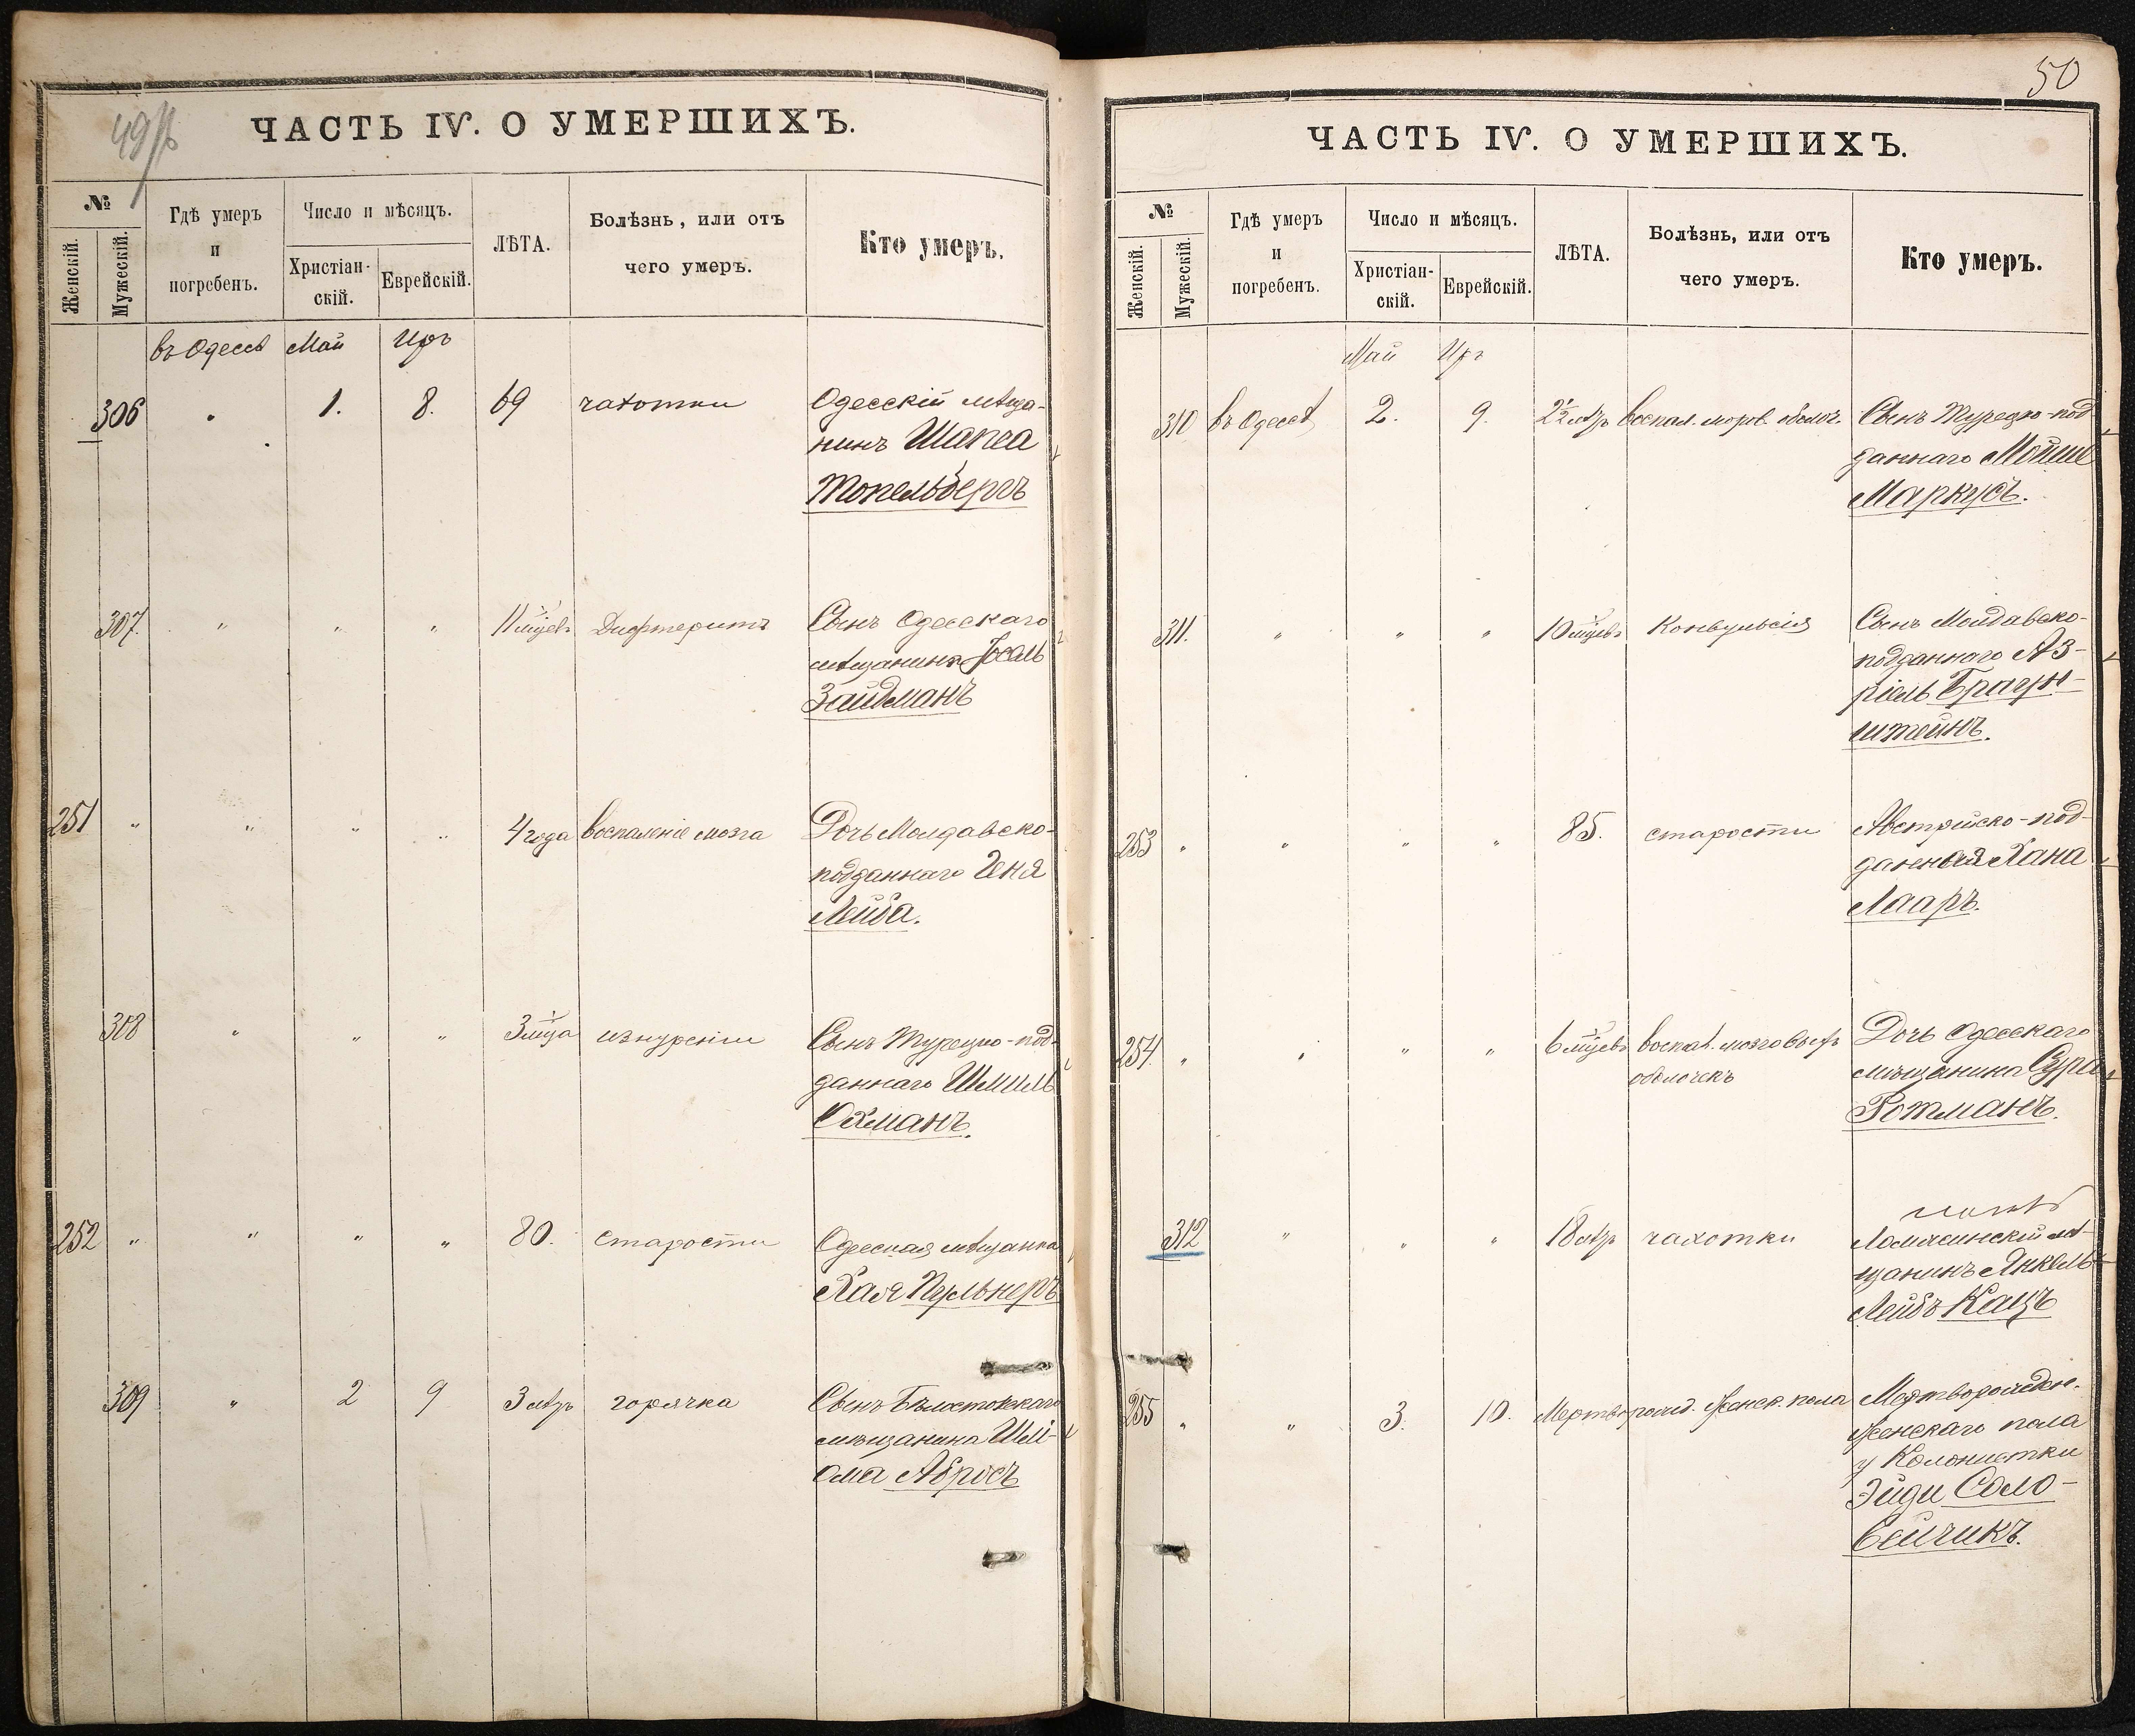 49
ЧАСТЬ IV. О УМЕРШИХЪ.
№
Женскій.
Мужескій.
Гдѣ умеръ
и
погребенъ.
Число и мѣсяцъ.
Христіан-
скій.
Еврейскій.
ЛѢТА.
Болѣзнь, или отъ
чего умеръ.
Кто умеръ.
въ Одессѣ Май Иръ
306 " 1. 8. 69 чахотки Одесскій мѣща-
нинъ Шапса
Топельбергъ
307. " " " 11 мцевъ Дифтеритъ Сынъ Одесскаго
мѣщанина Іосель
Зайдманъ
251 " " " " 4 года воспаленіе мозга Дочь Молдавско-
подданнаго Геня
Лейба.
308 " " " 3 мца изнуреніи Сынъ Турецко-под-
даннаго Шмиль
Охманъ.
252 " " " " 80. старости Одесская мѣщанка
Хая Пульнеръ
309 " 2 9 3 лѣтъ горячка Сынъ Бѣлостокскаго
мѣщанина Шлі-
ома Абрисъ
50
ЧАСТЬ IV. О УМЕРШИХЪ.
№
Женскій.
Мужескій.
Гдѣ умеръ
и
погребенъ.
Число и мѣсяцъ.
Христіан-
скій.
Еврейскій.
ЛѢТА.
Болѣзнь, или отъ
чего умеръ.
Кто умеръ.
Май Иръ
310 въ Одессѣ 2. 9. 2½ лѣтъ воспал. мозгов. оболоч. Сынъ Турецко-под-
даннаго Мойше
Маркусъ.
311. " " " 10 мцевъ Конвульсія Сынъ Молдавско-
подданнаго Аз-
ріель Браун-
штейнъ.
253 " " " " 85. старости Австрійско-под-
данная Хана
Лааръ.
254. " " " " 6 мцевъ воспал. мозговыхъ Дочь Одесскаго
оболочекъ мѣщанина Сура
Ротманъ.
312 " " " 18 лѣтъ чахотки Ломжинскій мѣ-
щанинъ Янкель
Лейбъ Кацъ
255 " " 3. 10. Мертворожд. женск. пола Мертворожден.
женскаго пола
у Колонистки
Эйди Соло-
вейчикъ.